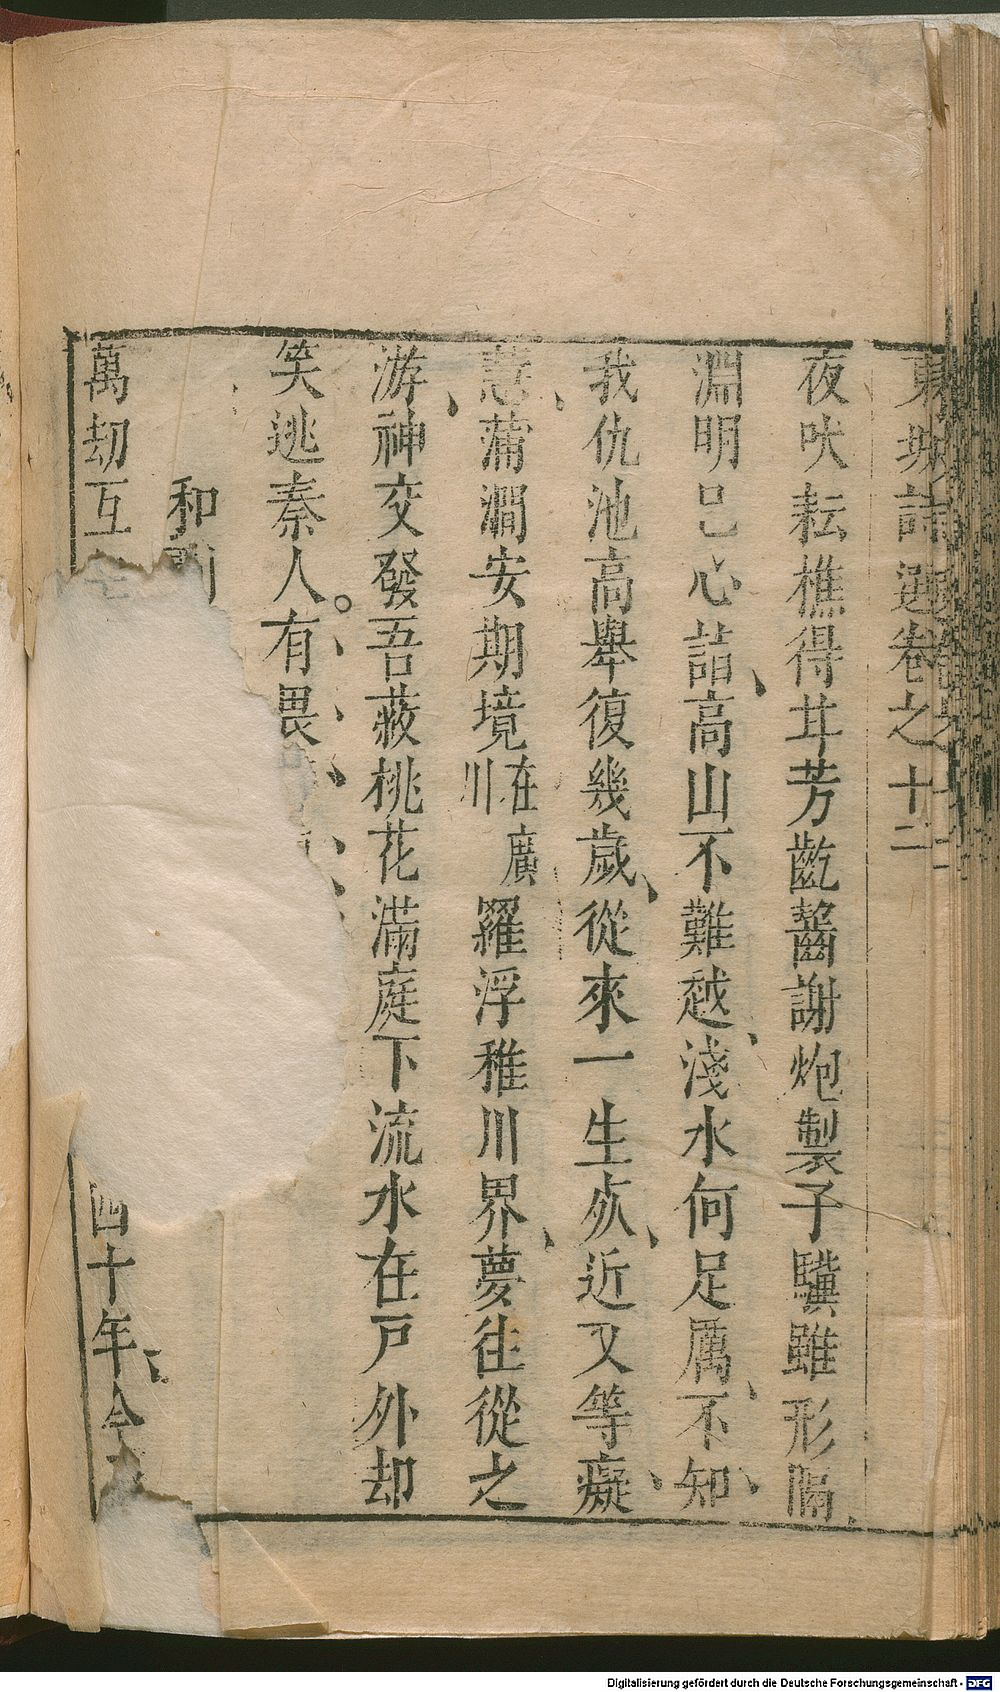 東坡詩選卷之十二
夜吠耘樵得甘芳齕齧謝炮製子驥雖形隔
淵明已心詣高山不難越淺水何足厲不知
我仇池高舉復幾歲從來一生死近又等癡
慧蒲澗安期境在廣川羅浮稚川界夢往從之
游神交發吾蔽桃花滿庭下流水在戸外却
笑逃秦人有畏
和劉
萬劫互 四十年今
Digitalisierung gefördert durch die Deutsche Forschungsgemeinschaft - DFG